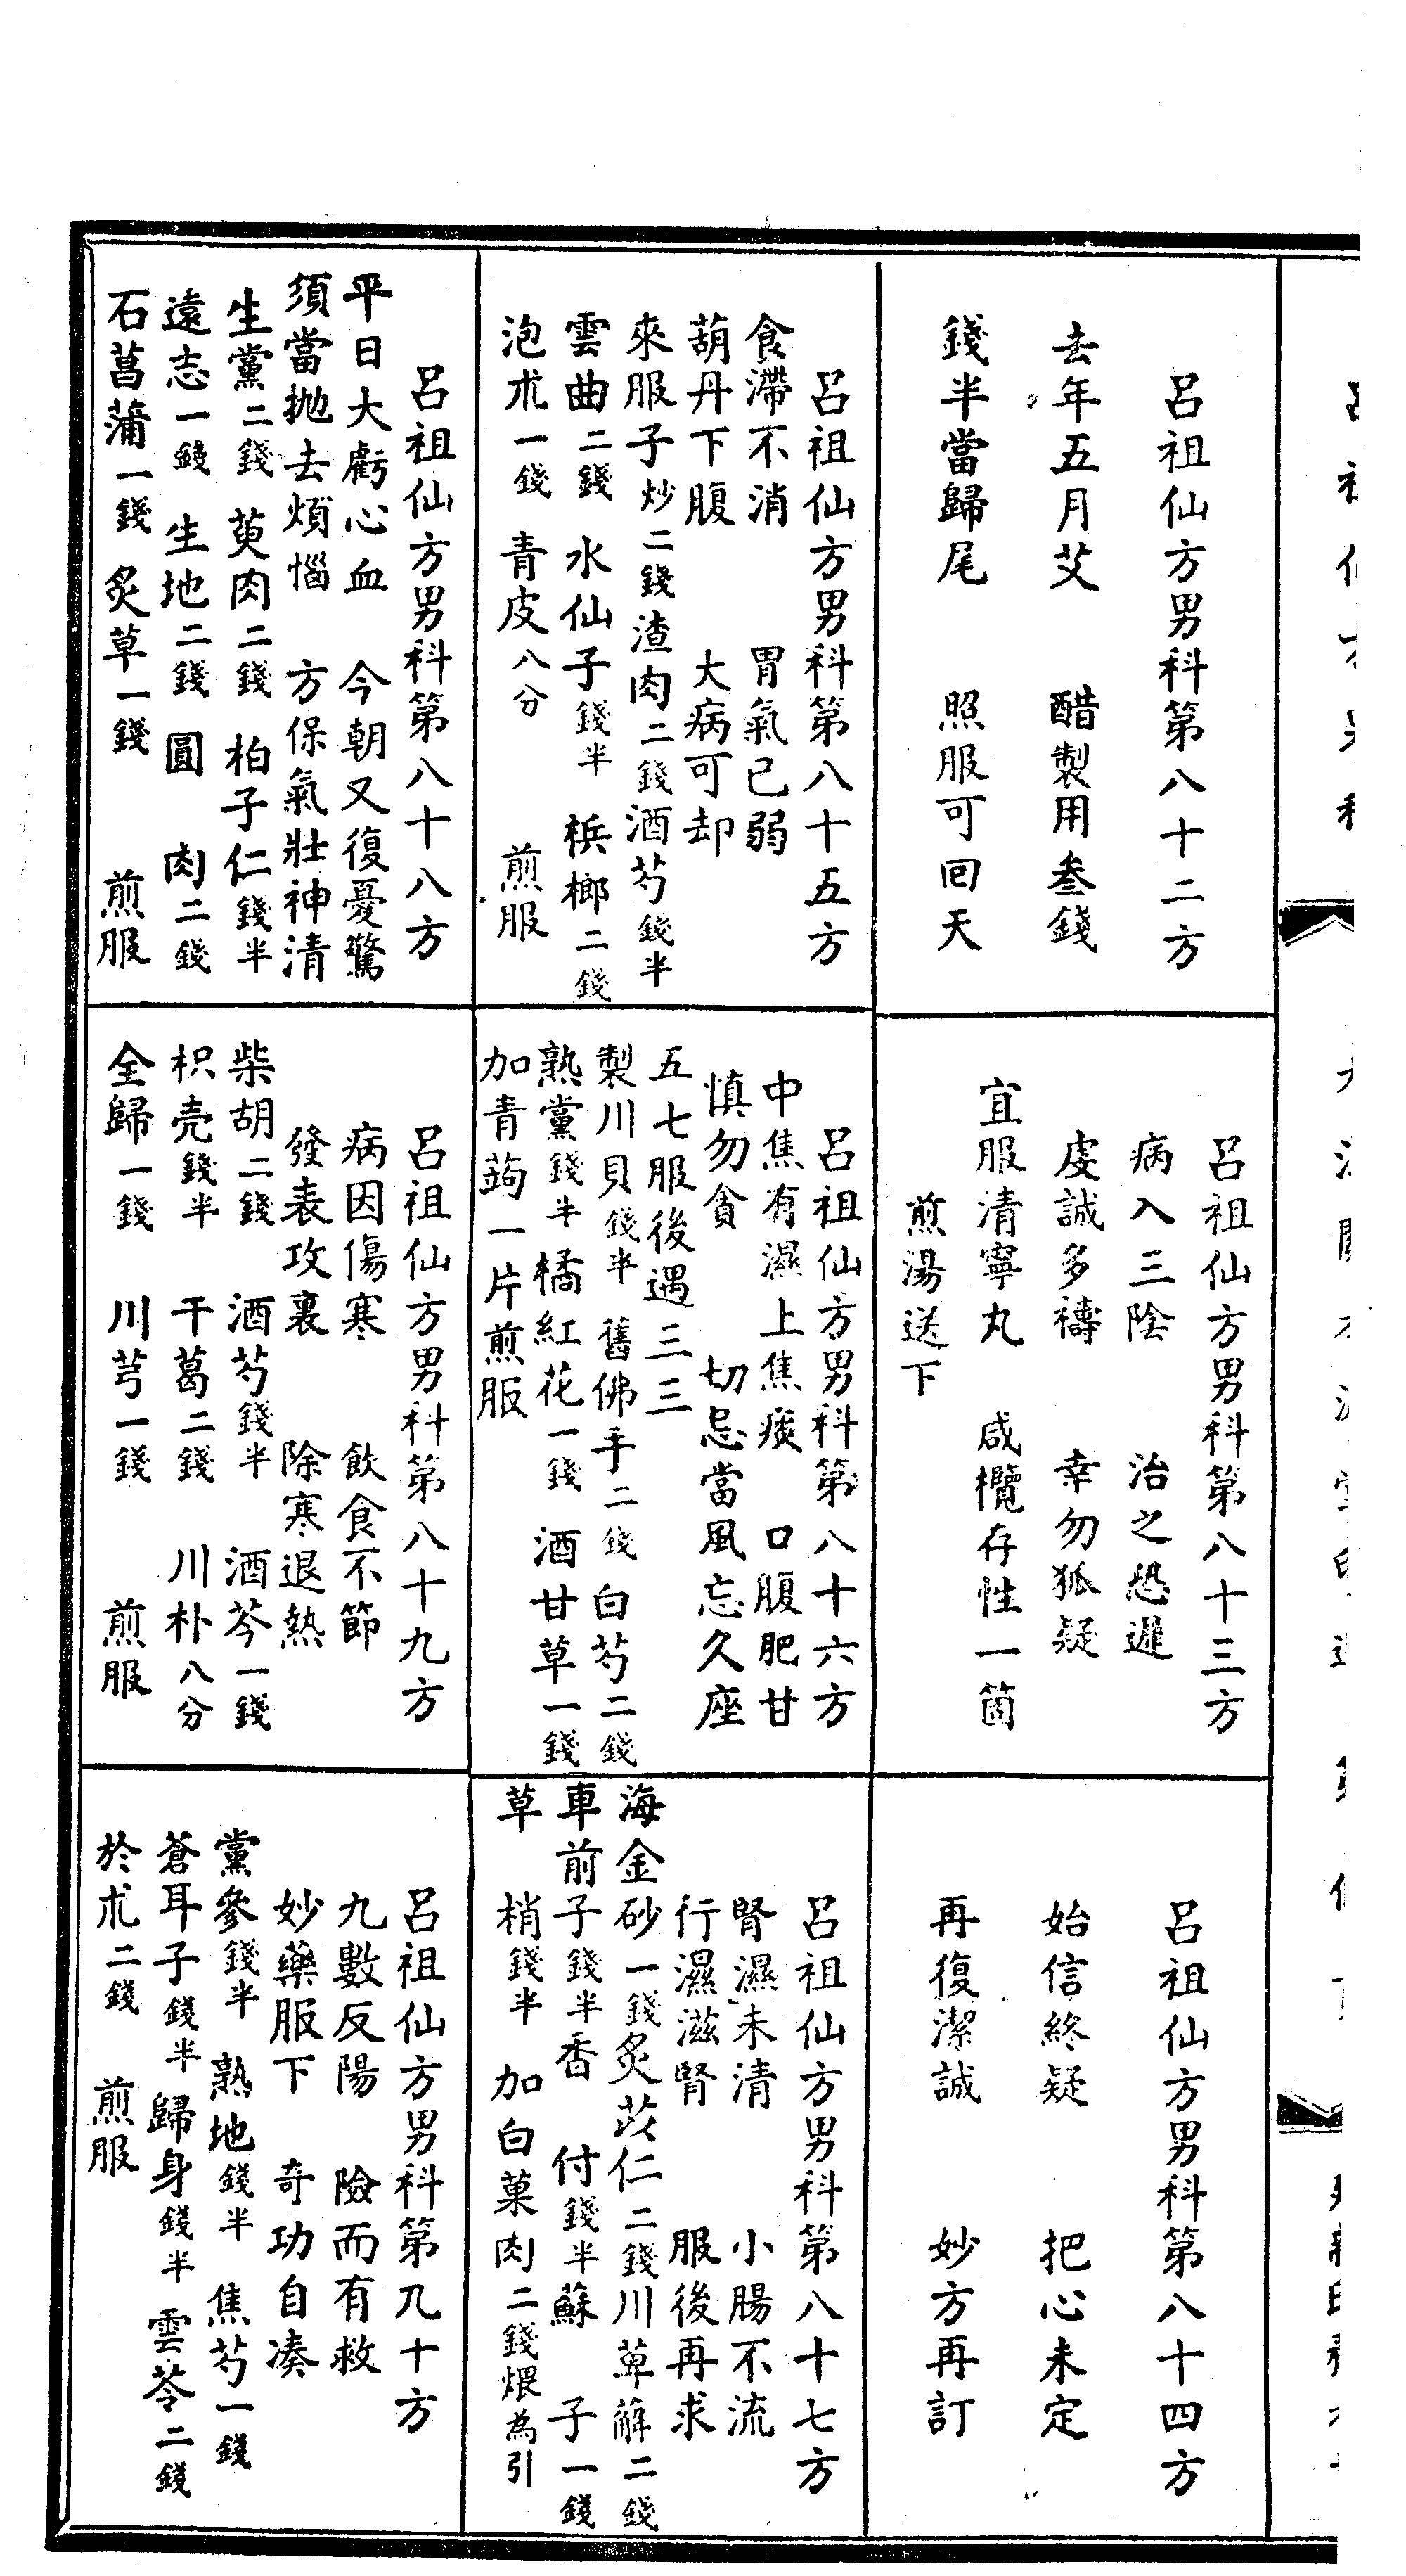 呂祖仙方男科第八十二方
去年五月艾　醋製用叁錢
錢半當歸尾　照服可回天
呂祖仙方男科第八十三方
病入三陰　治之恐遲
虔誠多禱　幸勿狐疑
宜服清寧丸　咸欖存性一箇
煎湯送下
呂祖仙方男科第八十四方
始信終疑　把心未定
再復潔誠　妙方再訂
呂祖仙方男科第八十五方
食滯不消　胃氣已弱
葫丹下腹　大病可却
來服子炒二錢渣肉二錢酒芍錢半
雲曲二錢　水仙子錢半　梹榔二錢
泡朮一錢　青皮八分　煎服
呂祖仙方男科第八十六方
中焦有濕上焦痰　口腹肥甘
慎勿貪　切忌當風忘久座
五七服後遇三三
製川貝錢半　舊佛手二錢　白芍二錢
熟黨錢半橘紅花一錢　酒甘草一錢
加青蒟一片煎服
呂祖仙方男科第八十七方
腎濕未清　小腸不流
行濕滋腎　服後再求
海金砂一錢炙苡仁二錢川萆薢二錢
車前子錢半香　付錢半蘇　子一錢
草　梢錢半　加白菓肉二錢煨為引
呂祖仙方男科第八十八方
平日大虧心血　今朝又復憂驚
須當拋去煩惱　方保氣壯神清
生黨二錢　萸肉二錢　柏子仁錢半
遠志一錢　生地二錢　圓　肉二錢
石菖蒲一錢　炙草一錢　煎服
呂祖仙方男科第八十九方
病因傷寒　飲食不節
發表攻裏　除寒退熱
柴胡二錢　酒芍錢半　酒芩一錢
枳壳錢半　干葛二錢　川朴八分
全歸一錢　川芎一錢　煎服
呂祖仙方男科第九十方
九數反陽　險而有救
妙藥服下　奇功自凑
黨參錢半　熟地錢半　焦芍一錢
蒼耳子錢半　歸身錢半　雲苓二錢
於朮二錢　煎服